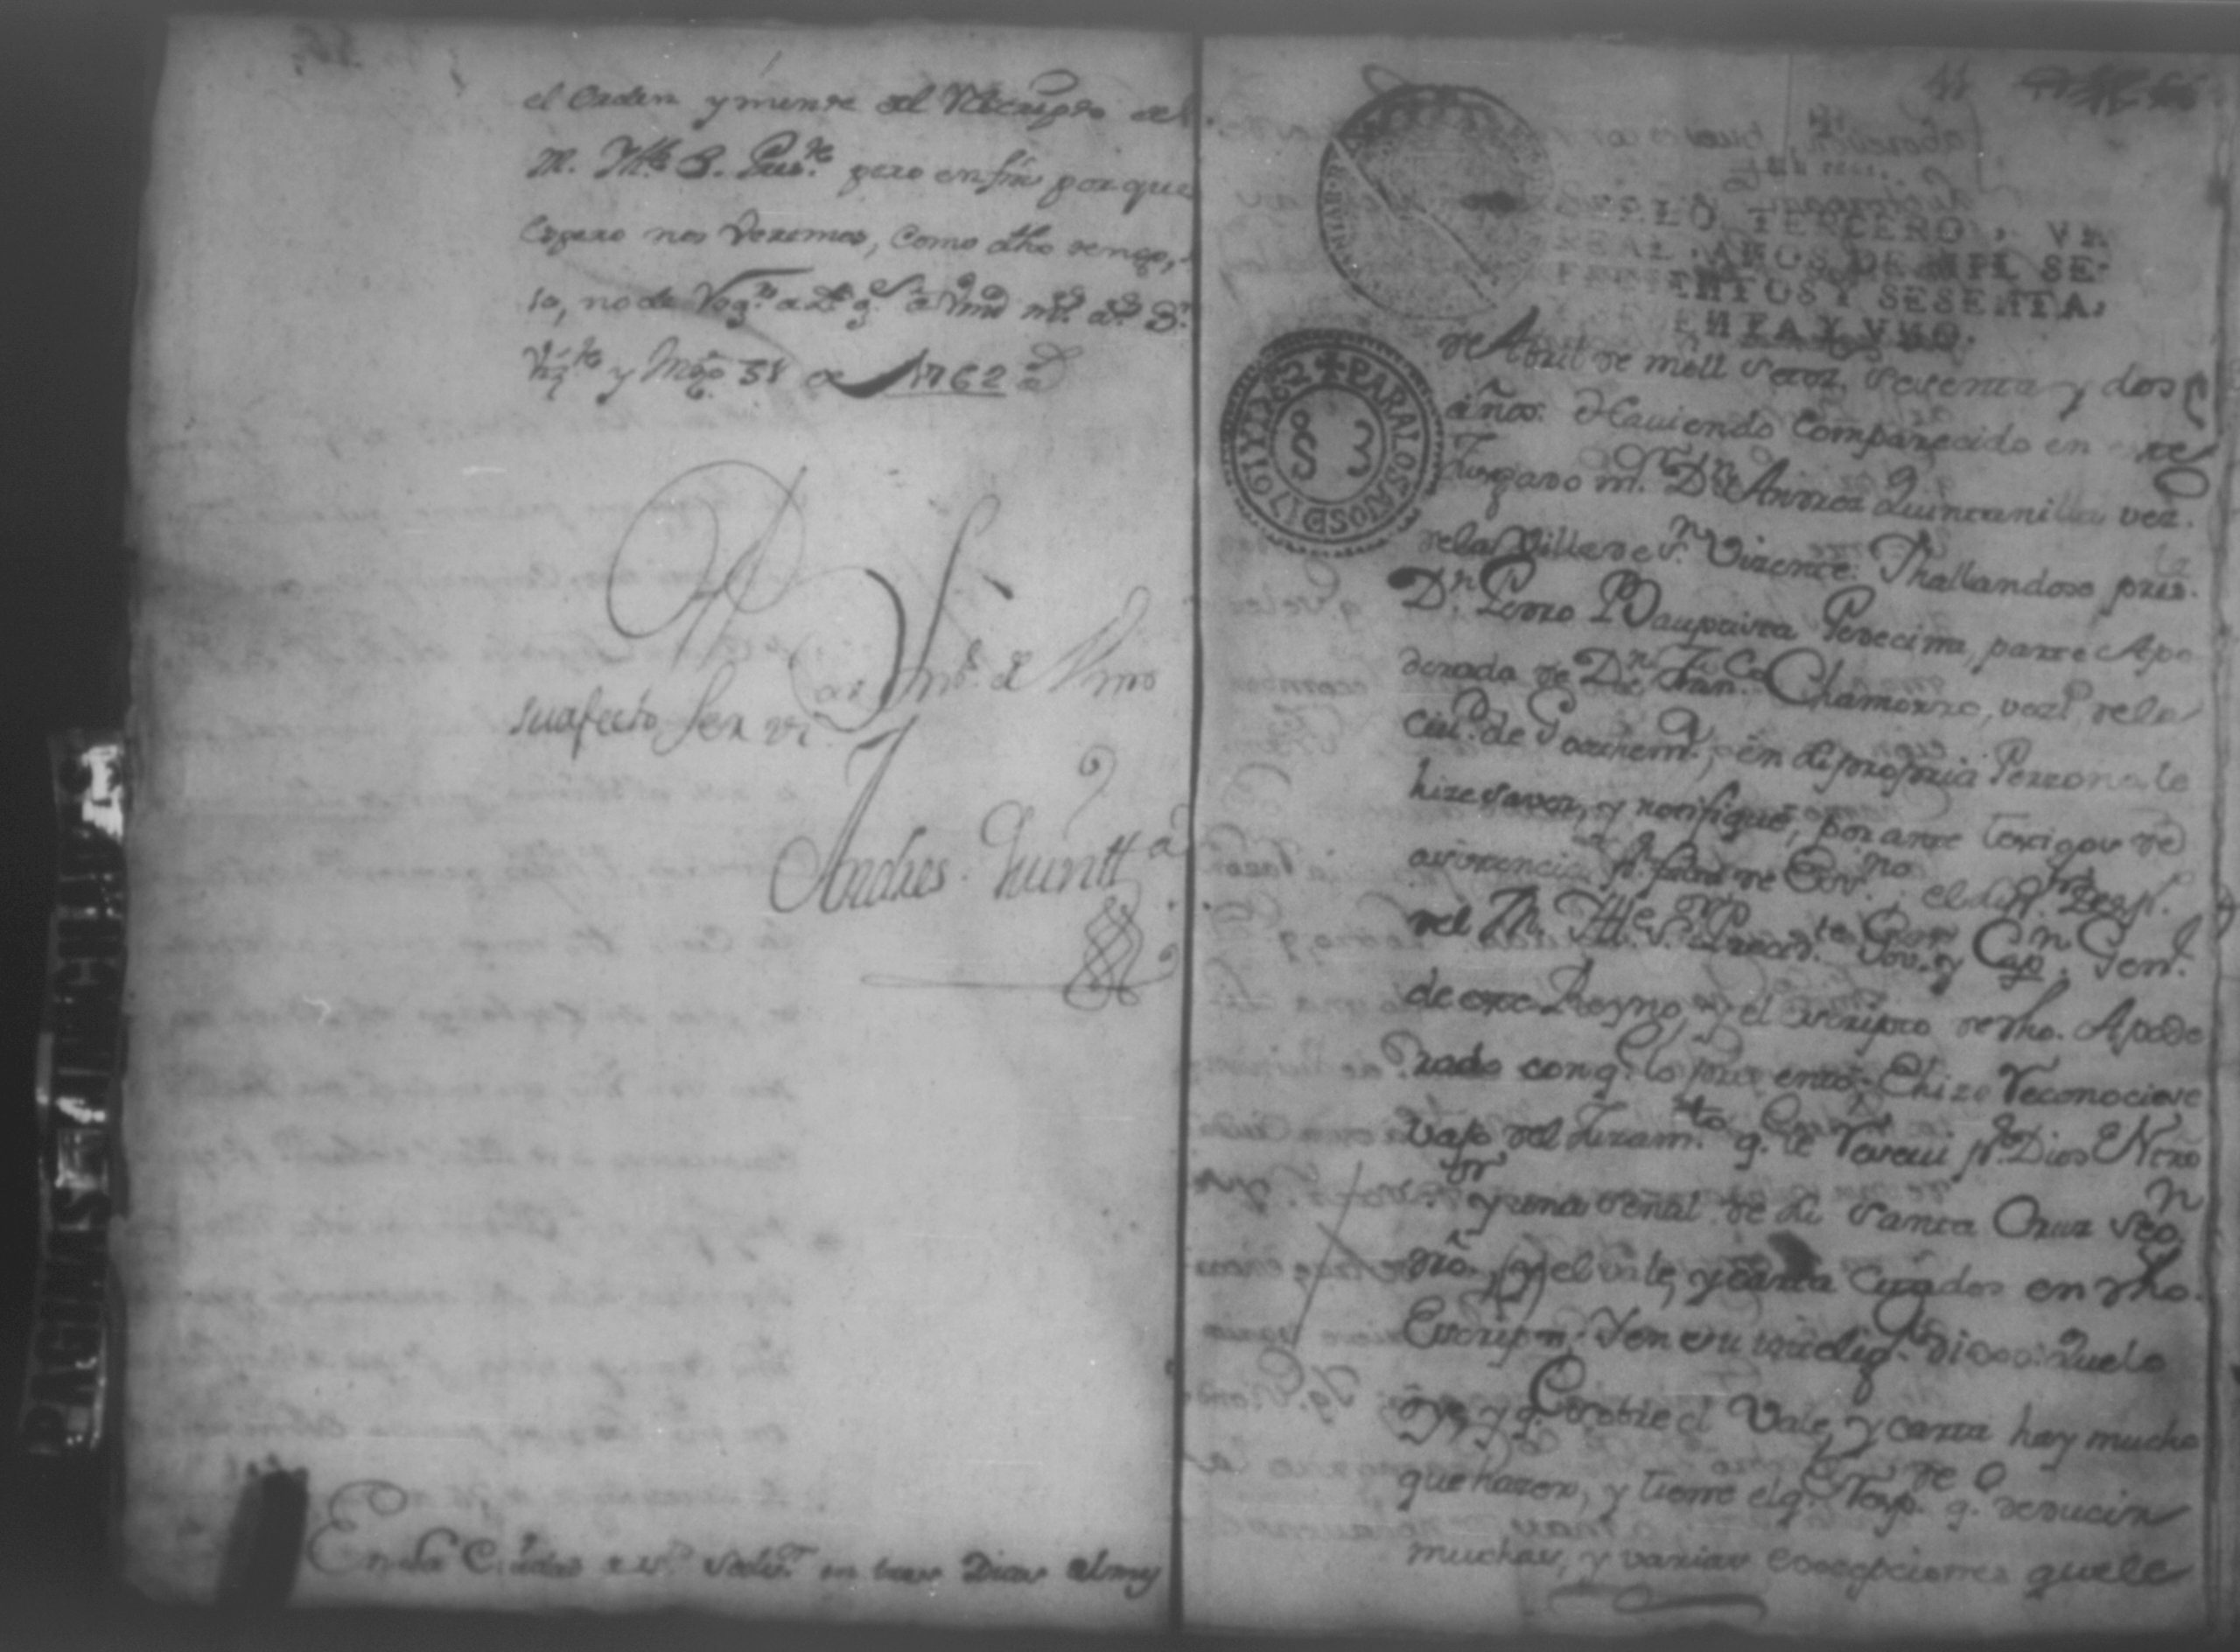 el Orden y mente del Rescripto del
M. Itte S. Press.te pero en fin por que
Espero nos veremos, como dho tengo,
lo, no de
y Mzo 31 de 1762 a
suafecto Ser vr.
Andres Quintt.a
En la Ciudad de Sn. Salv.r en tres Dias del mz
41
SELLO TERCERO, VN
REAL, AÑOS DE MIL SE-
TECIENTOS Y SESENTA,
SESENTA Y VNO.
PARA LOS AÑOS D 1761 Y 1762
S 3
de Abril de mill setez. sesenta y dos
años. Haviendo Comparecido en este
Juzgado mo. Dn. Andrez Quintanilla vez.
de la Villa de Sn. Vizente. Thallandose pres.te
Dn. Pedro Bauptista Perecima, parte Apo
derada de Dn. Fran.co Chamorro, vezo. de la
Ciud. de Goathem.a, en su propria Perzona, le
hize saver, y notifiqué, por ante testigos de
asistencia pr. falta de Escr.no, el
del M. Itte. Sr. Precid.te Gov.or y Capn. Genl.
de este Reyno, y el escripto de dho. Apode
rado con q. lo pres entó, E hize reconociese
vajo del Juram.to q. le recevi pr. Dios Ntro
Sr. y una señal de su Santa Cruz segn
dro. el vale, y carta Citados en dho.
Escripto. Y en su inteligª. dixo: Que lo
oye, y q. sobre el Vale, y carta hay mucho
que hazer, y tiene el q. Resp.de q. deducir
muchas, y varias excepciones que le